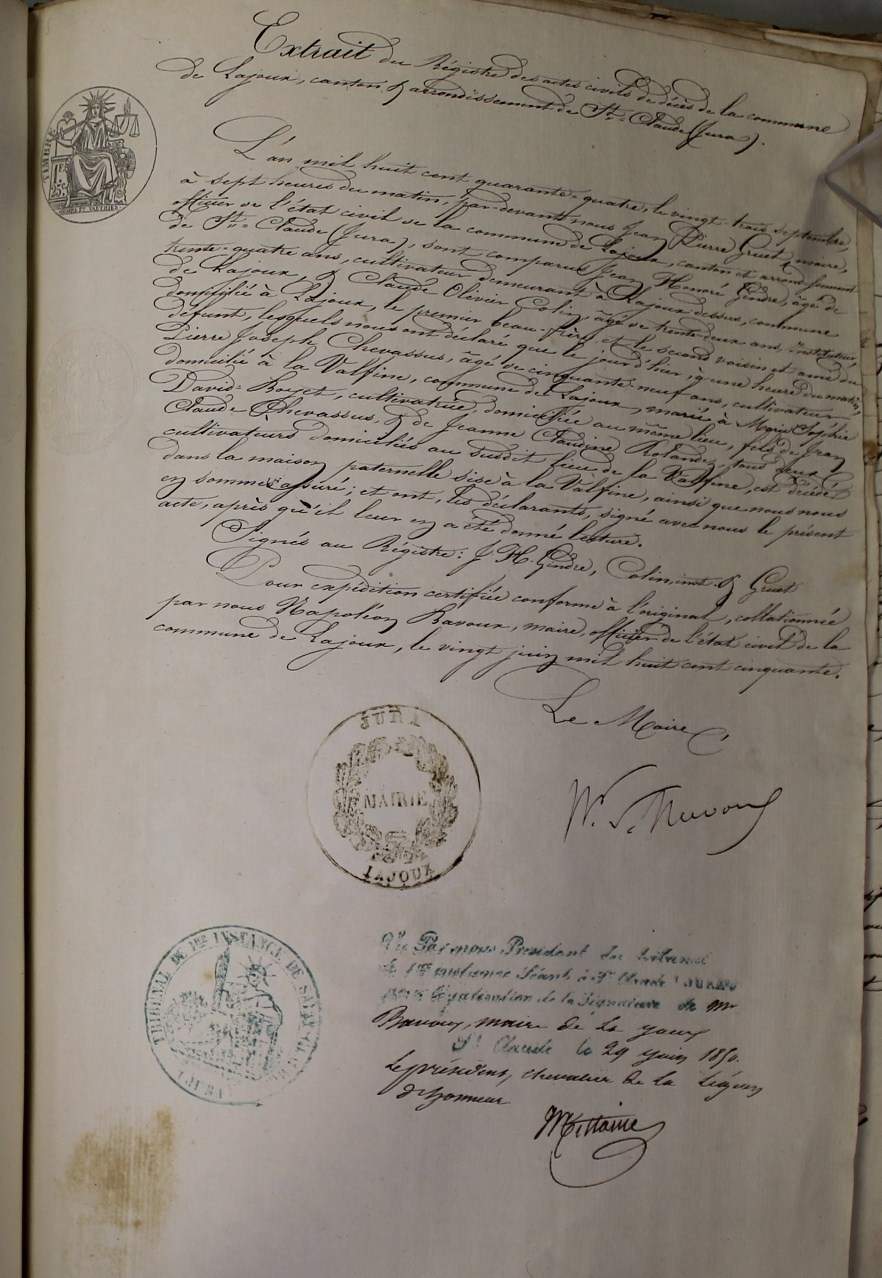 Extrait du Régistre des actes civils de décès de la commune
de Lajoux, canton & arrondissement de St-Claude (Jura).
TIMBRE
L'an mil huit cent quarante-quatre, le vingt-trois septembre,
à sept heures du matin, par-devant nous Jean Pierre Gruet, maire,
officier de l'état civil de la commune de Lajoux, canton et arrondissement
de St-Claude (Jura), sont comparus Jean Honoré Gindre, âgé de
trente-quatre ans, cultivateur demeurant à Lajoux dessus, commune
de Lajoux, & Claude Olivier Colin, âgé de trente deux ans, instituteur,
domicilié à Lajoux, le premier beau-frère et le second voisin et ami du
défunt, lesquels nous ont déclaré que le jour d'hier, à une heure du matin,
Pierre Joseph Chevassus, âgé de cinquante-neuf ans, cultivateur
domicilié à la Valfine, commune de Lajoux, marié à Marie Sophie
David-Rouget, cultivatrice, domiciliée au même lieu, fils de Jean
Claude Chevassus, & de Jeanne Claudine Rolandez, tous deux
cultivateurs domiciliés au susdit lieu de la Valfine, est décédé
dans la maison paternelle sise à la Valfine, ainsi que nous nous
en sommes assuré; et ont, les déclarants, signé avec nous le présent
acte, après qu'il leur en a été donné lecture.
Signés au Régistre: J. H. Gindre, Colin, inst. & Gruet
Pour expédition certifiée conforme à l'original, collationnée
par nous Napoléon Ravoux, maire, officier de l'état civil de la
commune de Lajoux, le vingt juin mil huit cent cinquante.
Le Maire
JURA
MAIRIE
LAJOUX
TRIBUNAL DE 1re INSTANCE DE SAINT-CLAUDE
(JURA)
Vu Par nous Président du tribunal
de 1re instance Séant à St Claude (JURA)
pour légalisation de la Signature de Mr
Ravoux, maire de la joux
St Claude le 29 juin 1850.
Le président, chevalier de la Légion
d'honneur